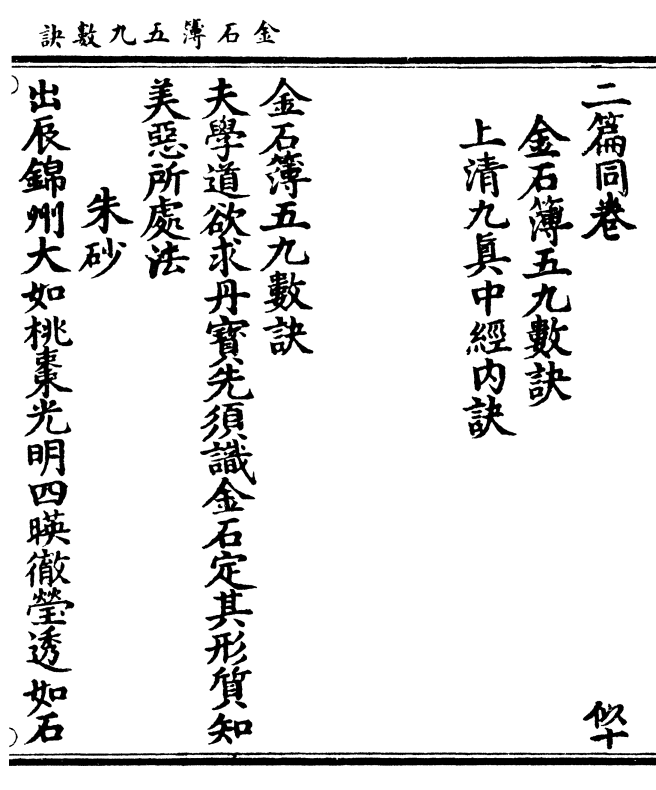 金石簿五九數訣
二篇同卷 似十
金石簿五九數訣
上清九真中經內訣
金石簿五九數訣
夫學道欲求丹寶先須識金石定其形質知
美惡所處法
朱砂
出辰錦州大如桃棗光明四暎徹瑩透如石